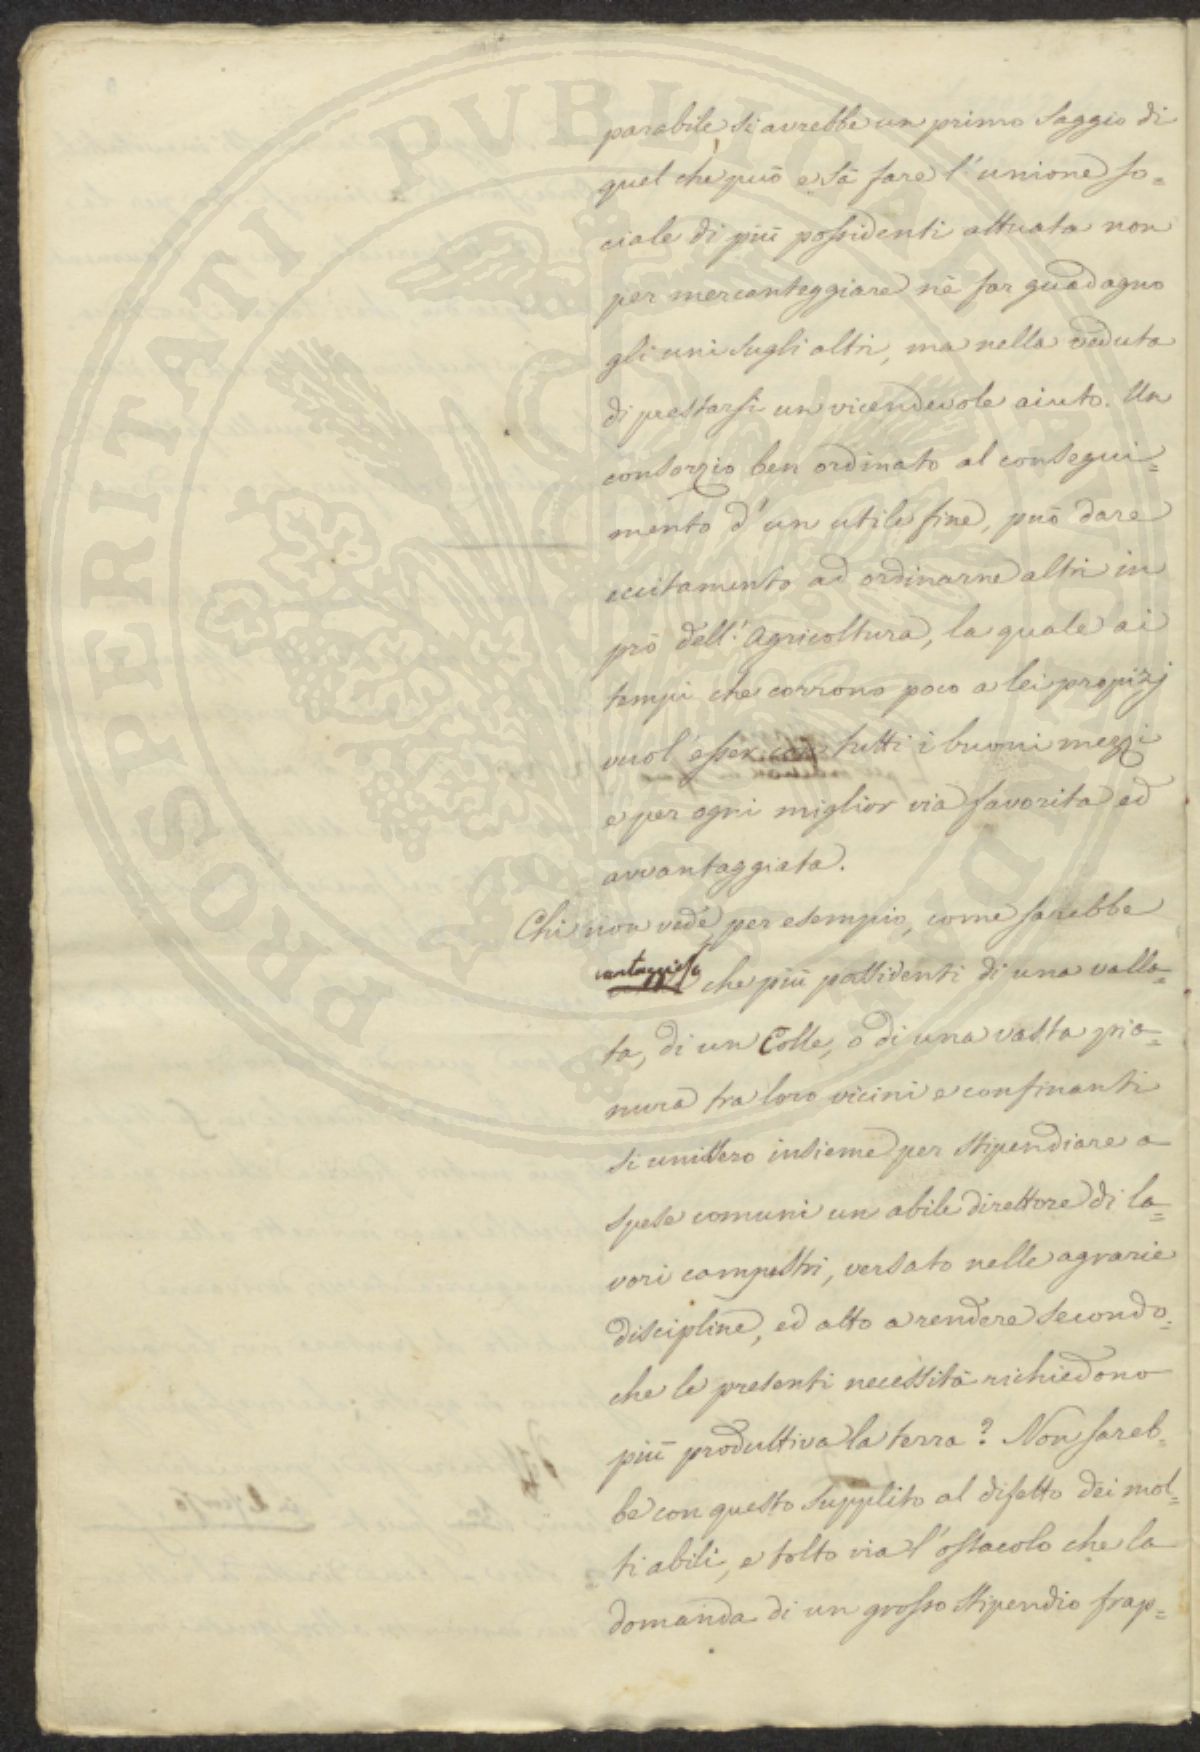 parabile, si avrebbe un primo saggio di
quel che può e sà fare l'unione so=
ciale di più possidenti attuata non
per mercanteggiare nè far guadagno
gli uni sugli altri, ma nella veduta
di prestarsi un vicendevole aiuto. Un
consorzio ben ordinato al consegui=
mento d'un utile fine, può dare
eccitamento ad ordinarne altri in
prò dell'Agricoltura, la quale ai
tempi che corrono poco a lei propizj
vuol'esser con tutti i buoni mezzi
e per ogni miglior via favorita ed
avvantaggiata.
Chi non vede, per esempio, come sarebbe
vantaggioso
che più possidenti di una valla=
ta, di un Colle, o di una vasta pia=
nura tra loro vicini e confinanti
si unissero insieme per stipendiare a
spese comuni un abile direttore di la=
vori campestri, versato nelle agrarie
discipline, ed atto a rendere secondo
che le presenti necessità richiedono
più produttiva la terra? Non sareb=
be con questo supplito al difetto dei mol=
ti abili, e tolto via l'ostacolo che la
domanda di un grosso stipendio frap=
PROSPERITATI PVBLICAE AVGENDAE